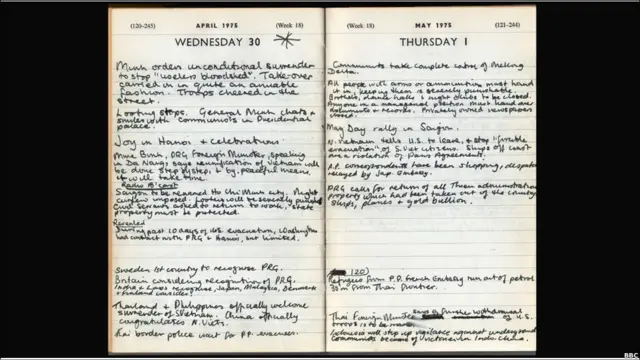 (120-245) APRIL 1975 (Week 18)
WEDNESDAY 30
Minh orders unconditional surrender
to stop "useless bloodshed". Take-over
carried out in quite an amiable
fashion. Troops cheered in the
street.
Looting stops. General Minh chats &
smiles with communists in Presidential
palace.
Joy in Hanoi & celebrations.
Mme Binh, PRG Foreign Minister, speaking
in Da Nang says reunification of Vietnam will
be done step by step, & by peaceful means.
it will take time.
Radio B'cast
Saigon to be renamed Ho Chi Minh city. Night
curfew imposed. Looters will be severely punished
Civil servants asked to return to work, state
property must be protected.
Revealed
During past 10 days of U.S. evacuation, Washington
had contact with PRG & Hanoi, but limited.
Sweden 1st country to recognise PRG.
Britain considering recognition of PRG.
India & Laos recognises, Japan, Malaysia, Denmark
& Finland consider!
Thailand & Philippines officially welcome
surrender of S Vietnam. China officially
congratulates N. Viets.
Thai border police wait for P.P. evacuees.
(Week 18) MAY 1975 (121-244)
THURSDAY 1
Communists take complete control of Mekong
Delta.
All people with arms or ammunition must hand
it in, keeping them is severely punishable.
Brothels, dance halls & night clubs to be closed.
Anyone in a managerial position must hand over
documents & records. Privately owned newspapers
closed.
May Day rally in Saigon.
N. Vietnam tells U.S. to leave, & stop "forcible
evacuation" of S. Viet citizens. Ships off coast
are a violation of Paris Agreements.
P.P. correspondents have been shipping, despatches
relayed by Jap. Embassy.
PRG calls for return of all Thieu administration
property which had been taken out of the country
Ships, planes & gold bullion.
120)
Refugees from P.P. French Embassy run out of petrol
30m from Thai frontier.
Thai Foreign Minister says a further withdrawal
of U.S.
troops is to be made
Indonesia will step up vigilance against underground
Communists because of victories in Indo-China.
BBC